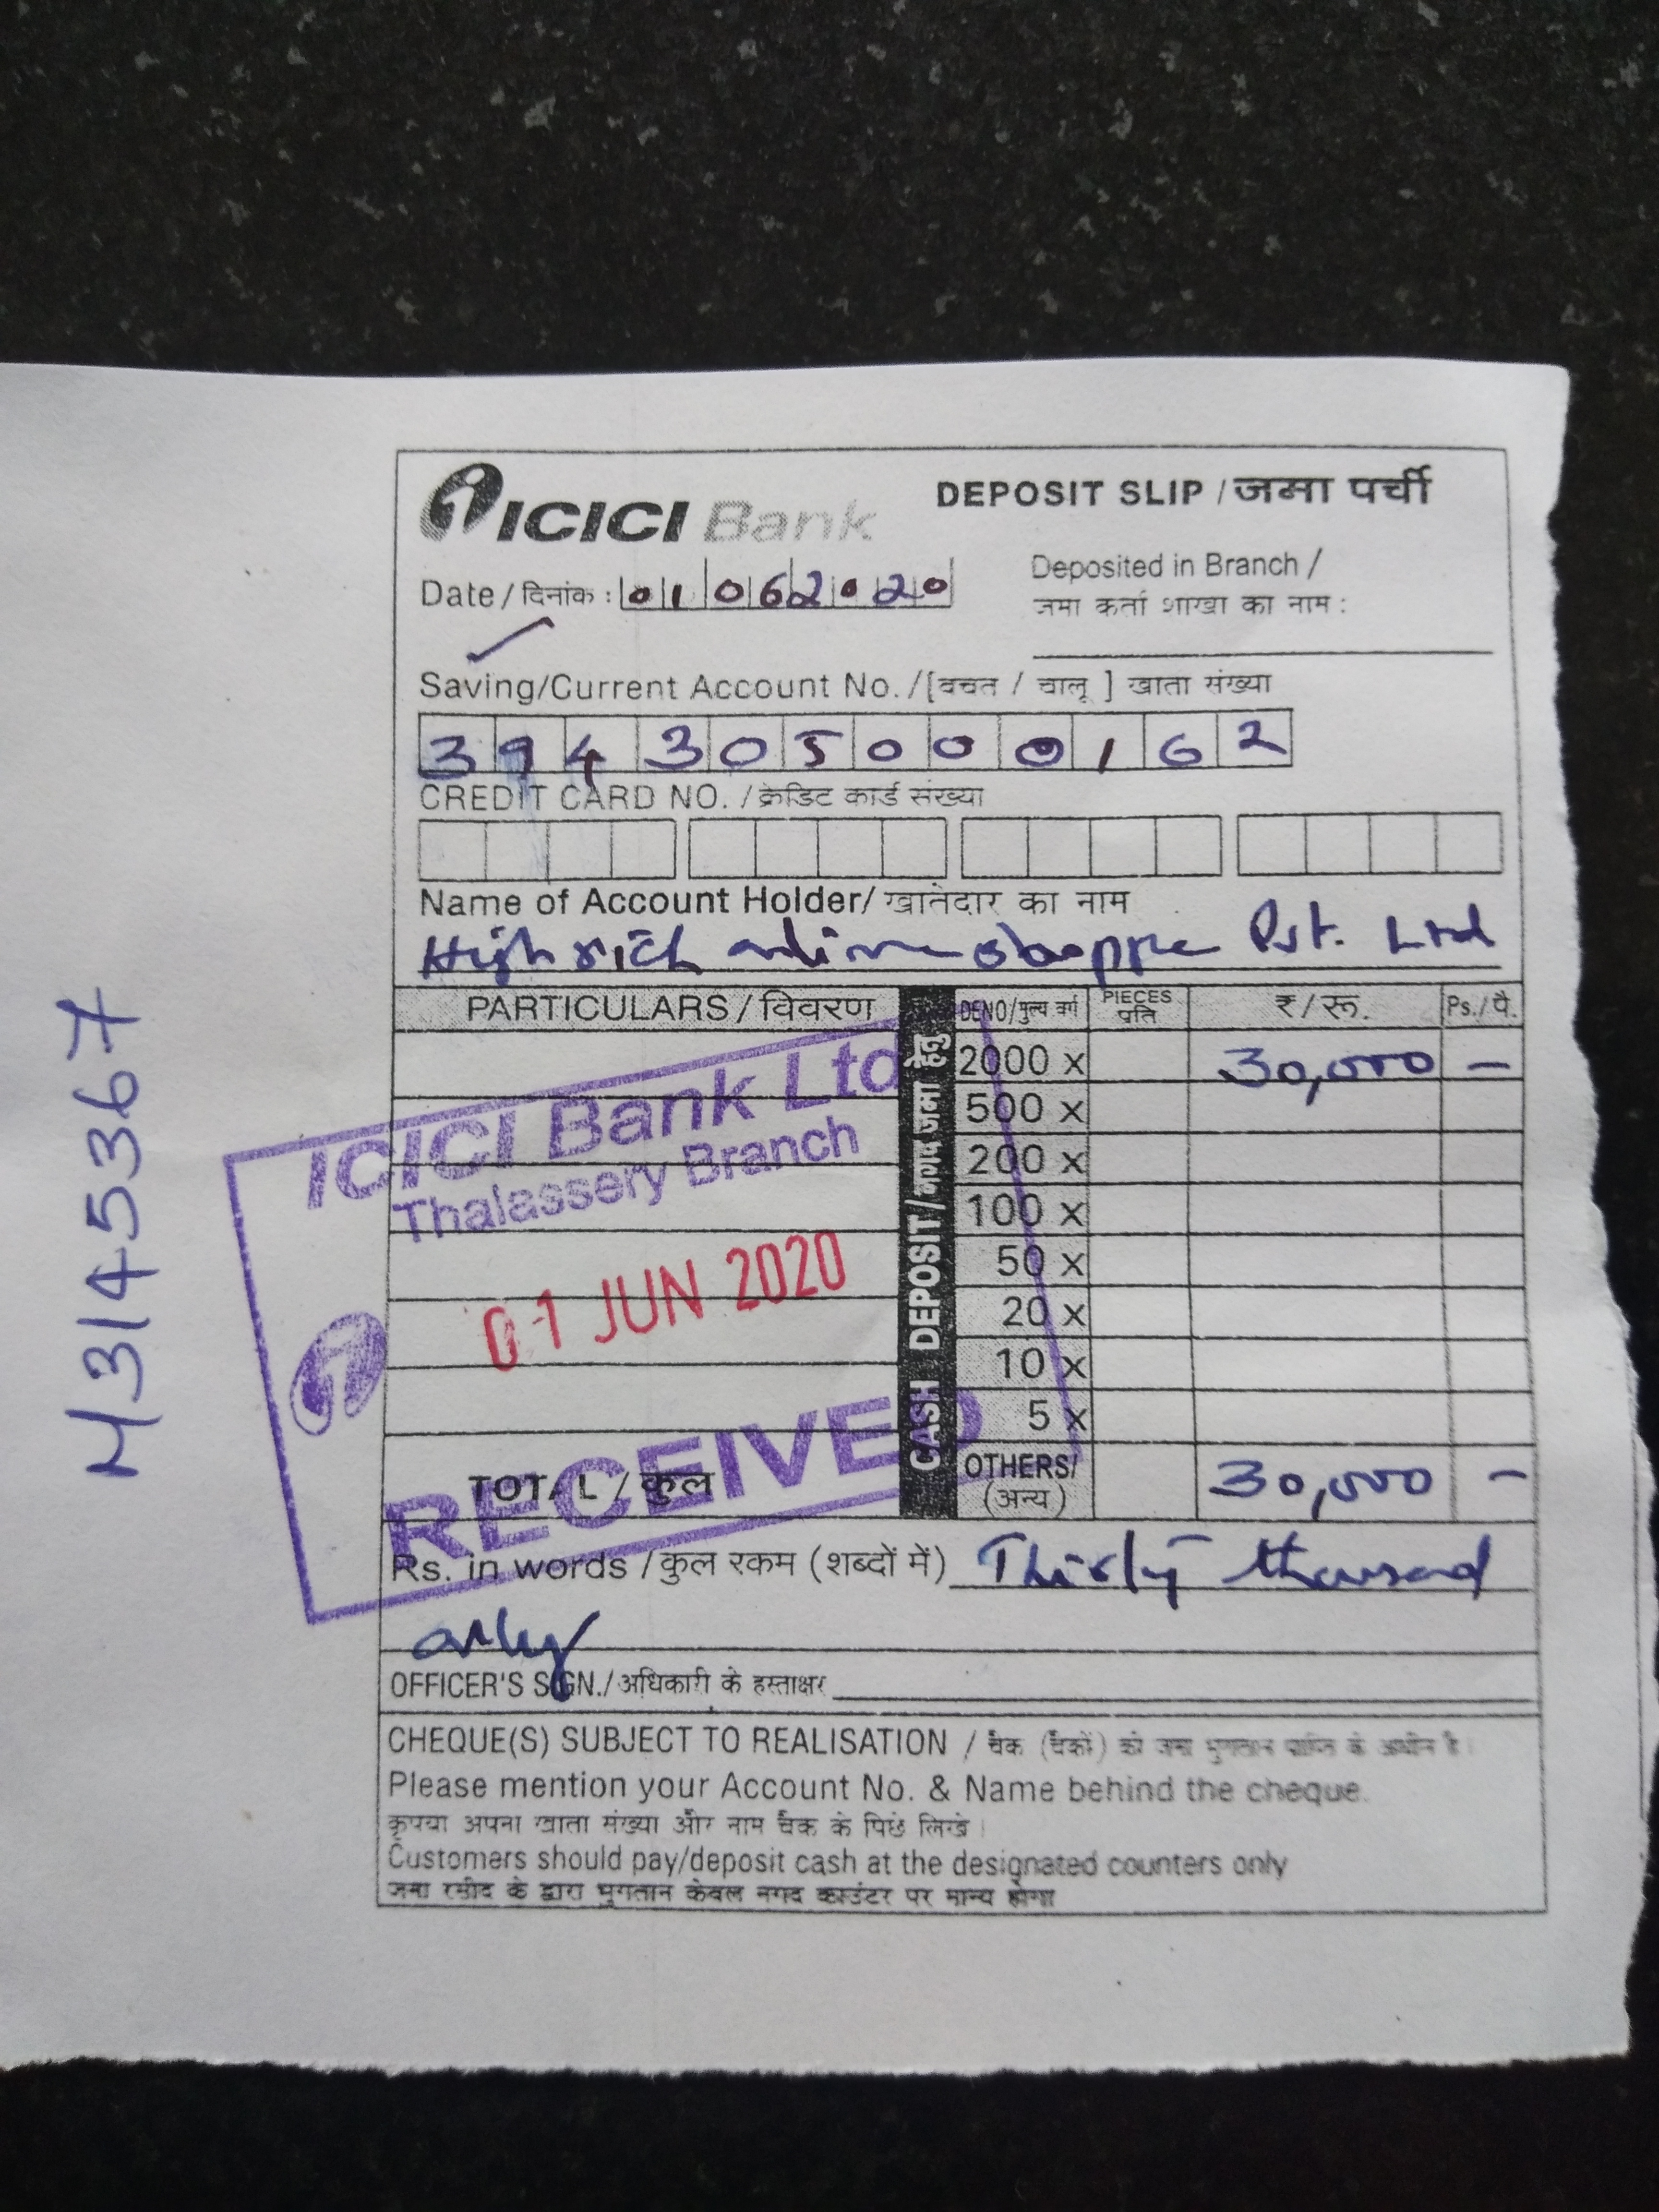 ICICI Bank
DEPOSIT SLIP / जमा पर्ची
Date / दिनांक : 01062020
Deposited in Branch /
जमा कर्ता शाखा का नाम :
Saving/Current Account No. /[बचत / चालू ] खाता संख्या
394305000162
CREDIT CARD NO. / क्रेडिट कार्ड संख्या
Name of Account Holder/ खातेदार का नाम
Highrich online shoppe Pvt. Ltd
PARTICULARS / विवरण DENO/मुल्य वर्ग PIECES प्रति ₹ / रू. Ps. / पै.
CASH DEPOSIT/नगद जमा हेतु
2000 x 30,000 –
500 x
200 x
100 x
50 x
20 x
10 x
5 x
OTHERS/
(अन्य)
TOTAL / कुल 30,000 –
ICICI Bank Ltd
Thalassery Branch
01 JUN 2020
RECEIVED
Rs. in words / कुल रकम (शब्दों में) Thirty thousand
only
OFFICER'S SIGN./ अधिकारी के हस्ताक्षर
CHEQUE(S) SUBJECT TO REALISATION / चैक (चैकों) की जमा भुगतान प्राप्ति के अधीन है।
Please mention your Account No. & Name behind the cheque.
कृपया अपना खाता संख्या और नाम चैक के पिछे लिखे।
Customers should pay/deposit cash at the designated counters only
जमा रसीद के द्वारा भुगतान केवल नगद काउंटर पर मान्य होगा